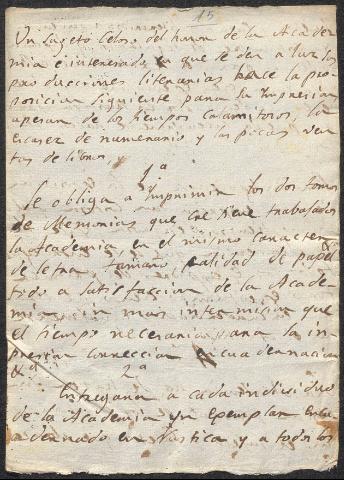 15
Un sugeto celoso del honor de la Acade
mia e interesado en que se den a luz los
producciones literarias hace la pro
posicion siguiente para su Impresion
apesar de los tiempos calamitosos, la
escasez de numerario y las pocas ven
tas de libros
1ª
Se obliga a Imprimir los dos tomos
de Memorias que tiene trabajados
la Academia en el mismo caracter
de letra, tamaño calidad de papel
todo a satisfaccion de la Acade
mia sin mas intermision que
el tiempo necesario para la im
presion correccion encuadernacion
&ª
2ª
Entregara a cada individuo
de la Academia un exemplar encu
adernado en rustica y a todos los